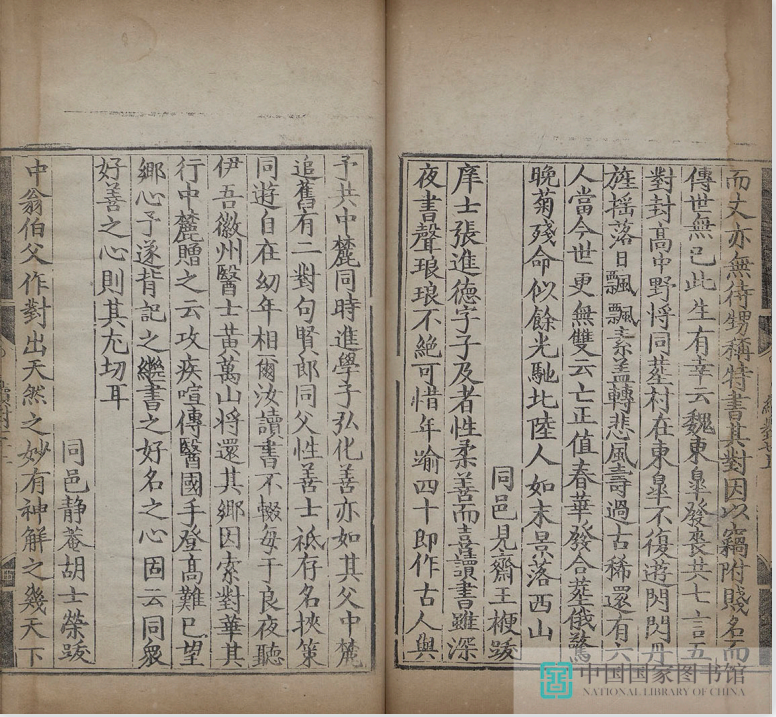 而丈亦無待甥稱特書其對因以竊附賤名而
傳世無已此生有幸云魏東皐發喪共七言五
對封高中野將同塟村在東皐不復遊閃閃丹
旌揺落日飄飄素盖轉悲風壽過古稀還有六
人當今世更無雙云亡正值春華發合塟俄驚
晚菊殘命似餘光馳北陸人如末景落西山
同邑見齋王梗跋
庠士張進德字子及者性柔善而喜讀書雖深
夜書聲琅琅不絶可惜年踰四十即作古人與
予共中麓同時進學子弘化善亦如其父中麓
追舊有二對句賢郎同父性善士袛存名挾策
同遊自在幼年相爾汝讀書不輟每于良夜聽
伊吾徽州醫士黄萬山将還其鄉因索對華其
行中麓贈之云攻疾喧傳醫國手登高難已望
鄉心予遂背記之繼書之好名之心固云同衆
好善之心則其尤切耳
同邑静菴胡士榮跋
中翁伯父作對出天然之妙有神解之幾天下
中国国家图书馆
NATIONAL LIBRARY OF CHINA